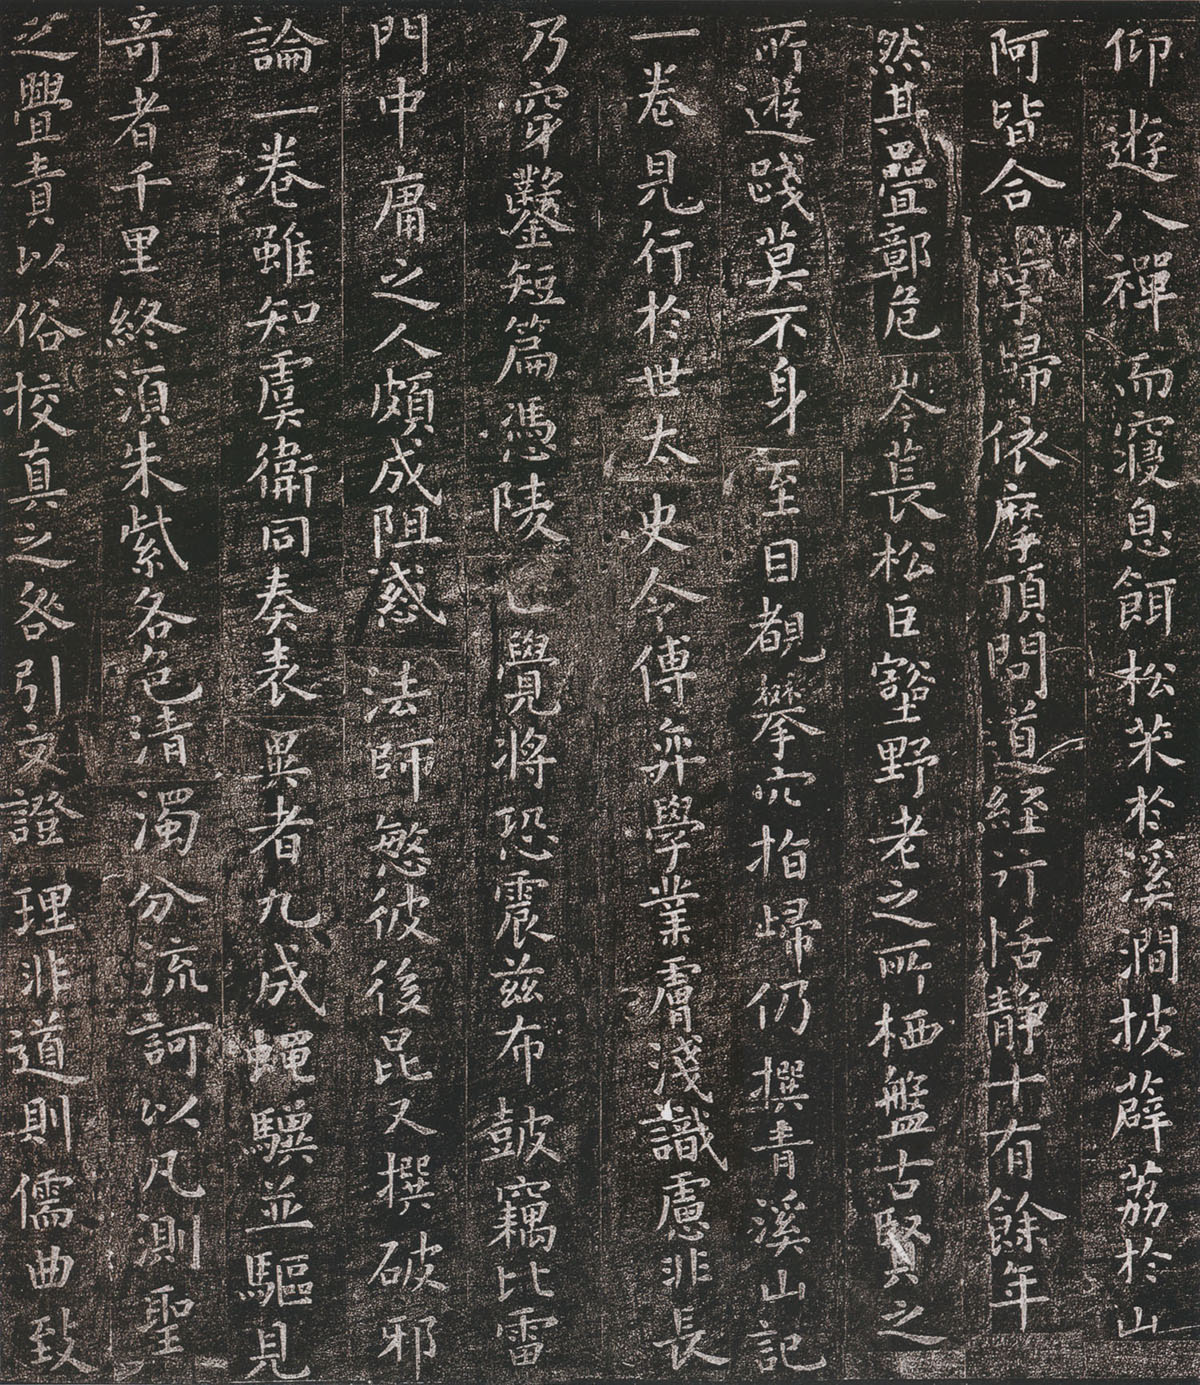 仰遊八禪而寢息餌松茱於溪澗披薜荔於山
阿皆合掌歸依摩頂問道経行恬靜十有餘年
然其疊嶂危岑萇松巨壑野老之所栖盤古賢之
所遊踐莫不身至目覩攀穴指歸仍撰青溪山記
一卷見行於世太史令傅弈學業膚淺識慮非長
乃穿鑿短篇憑陵正覺將恐震茲布鼓竊比雷
門中庸之人頗成阻惑法師愍彼後昆又撰破邪
論一卷雖知虞衛同奏表異者九成蝿驥並驅見
奇者千里終湏朱紫各色清濁分流訶以凡測聖
之亹責以俗校真之咎引文證理非道則儒曲致